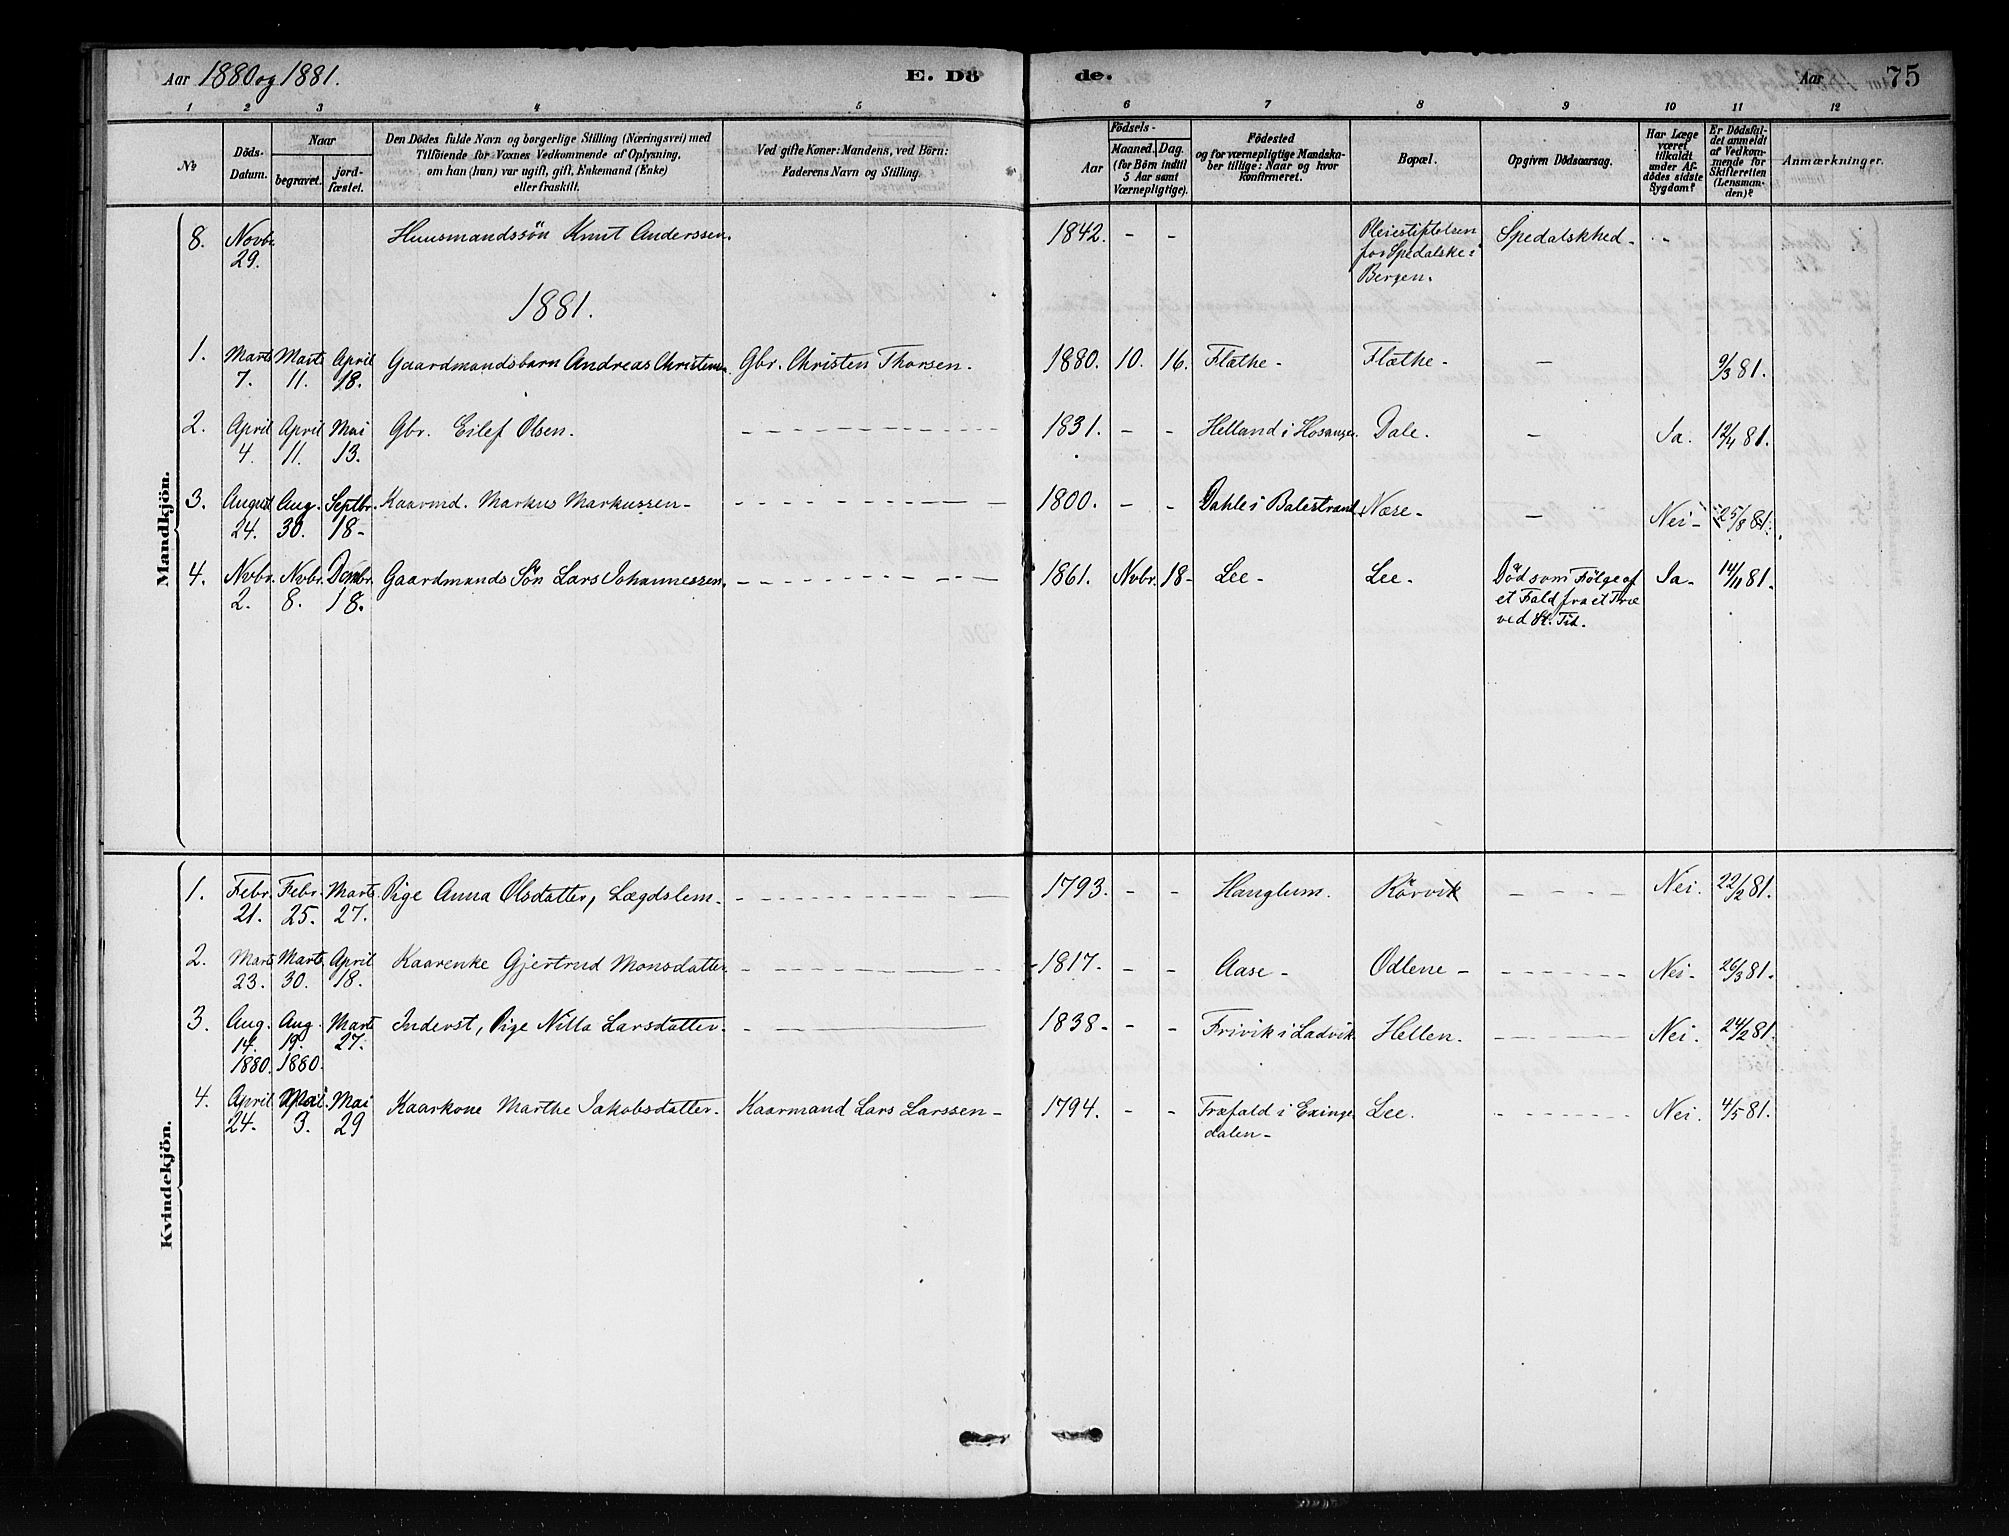 Aar 1880 og 1881.
E. Dö
de.
Aar
75
1 2 3 4 5 6 7 8 9 10 11 12
No
Döds-
Datum.
Naar
begravet.
jord-
fæstet.
Den Dödes fulde Navn og borgerlige Stilling (Næringsvei) med
Tilföiende för Voxnes Vedkommende af Oplysning,
om han (hun) var ugift, gift, Enkemand (Enke)
eller fraskilt.
Ved gifte Koner: Mandens, ved Börn:
Faderens Navn og Stilling.
Födsels-
Aar
Maaned. Dag.
(for Börn indtil
5 Aar samt
Værnepligtige).
Födested
og for værnepligtige Mandska-
ber tillige: Naar og hvor
konfirmeret.
Bopæl.
Opgiven Dödsaarsag.
Har Læge
været
tilkaldt
under Af-
dödes sidste
Sygdom?
Er Dödsfal-
det anmeldt
af Vedkom-
mende for
Skifteretten
(Lensman-
den)?
Anmærkninger.
Mandkjön.
8. Novbr. Huusmandssön Knut Anderssen. 1842. - - Pleiestiftelsen Spedalskhed - -
29. for Spedalske i
Bergen.
1881.
1. Marts Marts April Gaardmandsbarn Andreas Christensen Gbr. Christen Thorsen. 1880. 10. 16. Flæthe - Flæthe - - 9/3 81.
7. 11. 18.
2. April April Mai Gbr. Eilef Olsen. 1831. - - Helland i Hosanger. Dale. - Ja. 12/4 81.
4. 11. 13.
3. August Aug. Septbr. Kaarmd. Markus Markussen - 1800. - - Dahle i Balestrand Næse - - Nei - 25/8 81.
24. 30. 18 -
4. Nvbr. Nvbr. Dcmbr. Gaardmands Sön Lars Johannessen. 1861. Nvbr. 18 - Lee - Lee - Död som Fölge af Ja - 14/11 81.
2. 8. 18. et Fald fra et Træ
ved St. Tid.
Kvindekjön.
1. Febr. Febr. Marts Pige Anna Olsdatter, Lægdslem. 1793. - - Hanglum. Rörvik - Nei. 22/2 81.
21. 25. 27.
2. Marts Marts April Kaarenke Gjertrud Monsdatter 1817. - - Aase - Odlene - Nei - 26/3 81.
23. 30. 18.
3. Aug. Aug. Marts Inderst, Pige Nilla Larsdatter. 1838 - - - Frivik i Ladvik. Hellen. - Nei. 24/2 81.
14. 19. 27.
1880. 1880.
4. April Mai Mai Kaarkone Marthe Jakobsdatter. Kaarmand Lars Larssen - 1794. - - Træfald i Exinge Lee. - Nei. 4/5 81.
24. 3. 29 dalen -